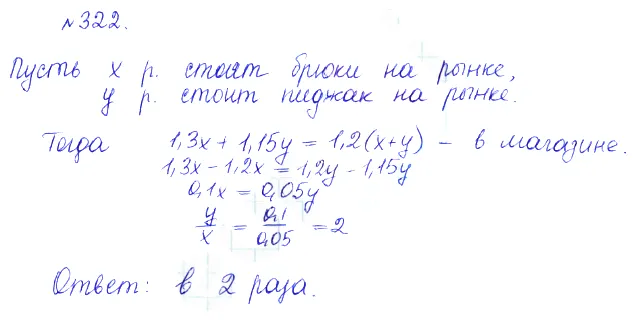 №322.
Пусть x р. стоят брюки на рынке,
y р. стоит пиджак на рынке.
Тогда 1,3x + 1,15y = 1,2(x+y) – в магазине.
1,3x – 1,2x = 1,2y – 1,15y
0,1x = 0,05y
y/x = 0,1/0,05 = 2
Ответ: в 2 раза.